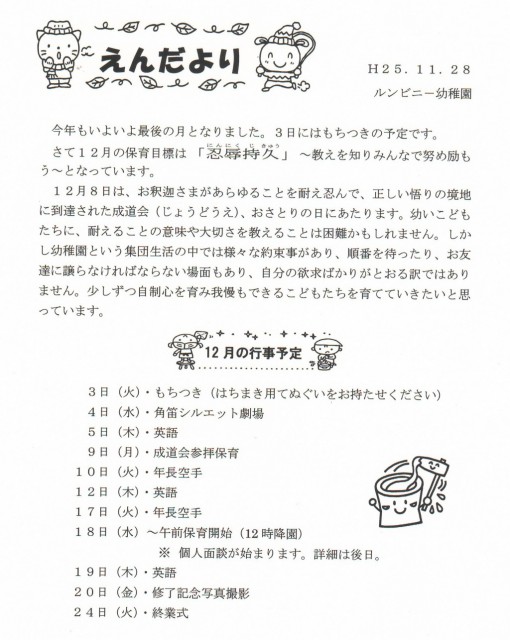 えんだより
H25.11.28
ルンビニー幼稚園
今年もいよいよ最後の月となりました。3日にはもちつきの予定です。
さて12月の保育目標は「忍辱持久」～教えを知りみんなで努め励も
う～となっています。
12月8日は、お釈迦さまがあらゆることを耐え忍んで、正しい悟りの境地
に到達された成道会（じょうどうえ）、おさとりの日にあたります。幼いこども
たちに、耐えることの意味や大切さを教えることは困難かもしれません。しか
し幼稚園という集団生活の中では様々な約束事があり、順番を待ったり、お友
達に譲らなければならない場面もあり、自分の欲求ばかりがとおる訳ではあり
ません。少しずつ自制心を育み我慢もできるこどもたちを育てていきたいと思
っています。
12月の行事予定
3日（火）・もちつき（はちまき用てぬぐいをお持たせください）
4日（水）・角笛シルエット劇場
5日（木）・英語
9日（月）・成道会参拝保育
10日（火）・年長空手
12日（木）・英語
17日（火）・年長空手
18日（水）～午前保育開始（12時降園）
※ 個人面談が始まります。詳細は後日。
19日（木）・英語
20日（金）・修了記念写真撮影
24日（火）・終業式